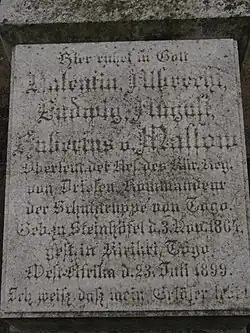 Hier ruhet in Gott
Valentin, Albrecht,
Ludwig, August,
Hubertus v. Massow
Oberleut. der Res. des Kür. Reg.
von Driesen, Kommandeur
der Schutztruppe von Togo.
Geb. zu Steinhöfel d. 3. Nov. 1864.
gest. in Kirikri, Togo
West-Afrika d. 23. Juli 1899.
Ich weiß, daß mein Erlöser lebt.